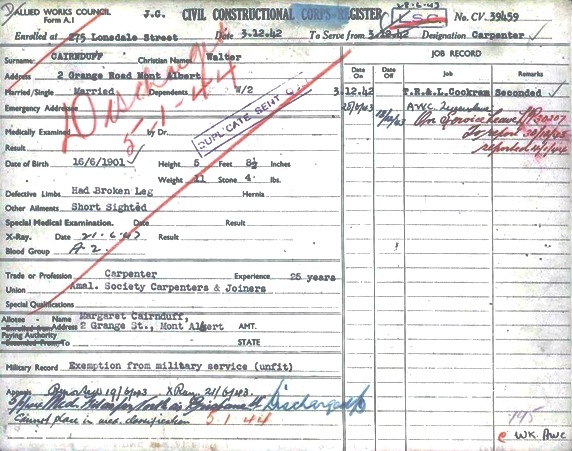 ALLIED WORKS COUNCIL
Form A.1
J.C.
CIVIL CONSTRUCTIONAL CORPS-REGISTER
28-6-43
C.S.C.
No. CV. 39459
Enrolled at 275 Lonsdale Street Date 3.12.42 To Serve from 3.12.42 Designation Carpenter
Surname: CAIRNDUFF Christian Names Walter
Address 2 Grange Road Mont Albert
Married/Single Married Dependents W/2
Emergency Address
Discharged
5-1-44
DUPLICATE SENT
Medically Examined by Dr.
Result
Date of Birth 16/6/1901 Height 5 Feet 8½ Inches
Weight 11 Stone 4 lbs.
Defective Limbs Had Broken Leg Hernia
Other Ailments Short Sighted
Special Medical Examination. Date Result
X-Ray. Date 21.6.43 Result
Blood Group A-2
Trade or Profession Carpenter Experience 25 years
Union Amal. Society Carpenters & Joiners
Special Qualifications
Allotee - Name Margaret Cairnduff
Enrolled from Address 2 Grange St., Mont Albert AMT.
Paying Authority
Seconded From/To STATE
Military Record Exemption from military service (unfit)
Appeals 19/6/43 X Ray 21/6/43
Discharged
Cannot place in med. classification 5-1-44
JOB RECORD
Date On Date Off Job Remarks
3.12.42 T.R.&.L.Cockram Seconded
A.W.C. Queensland
On Service Leave
To report
reported
195
c WK. AWC